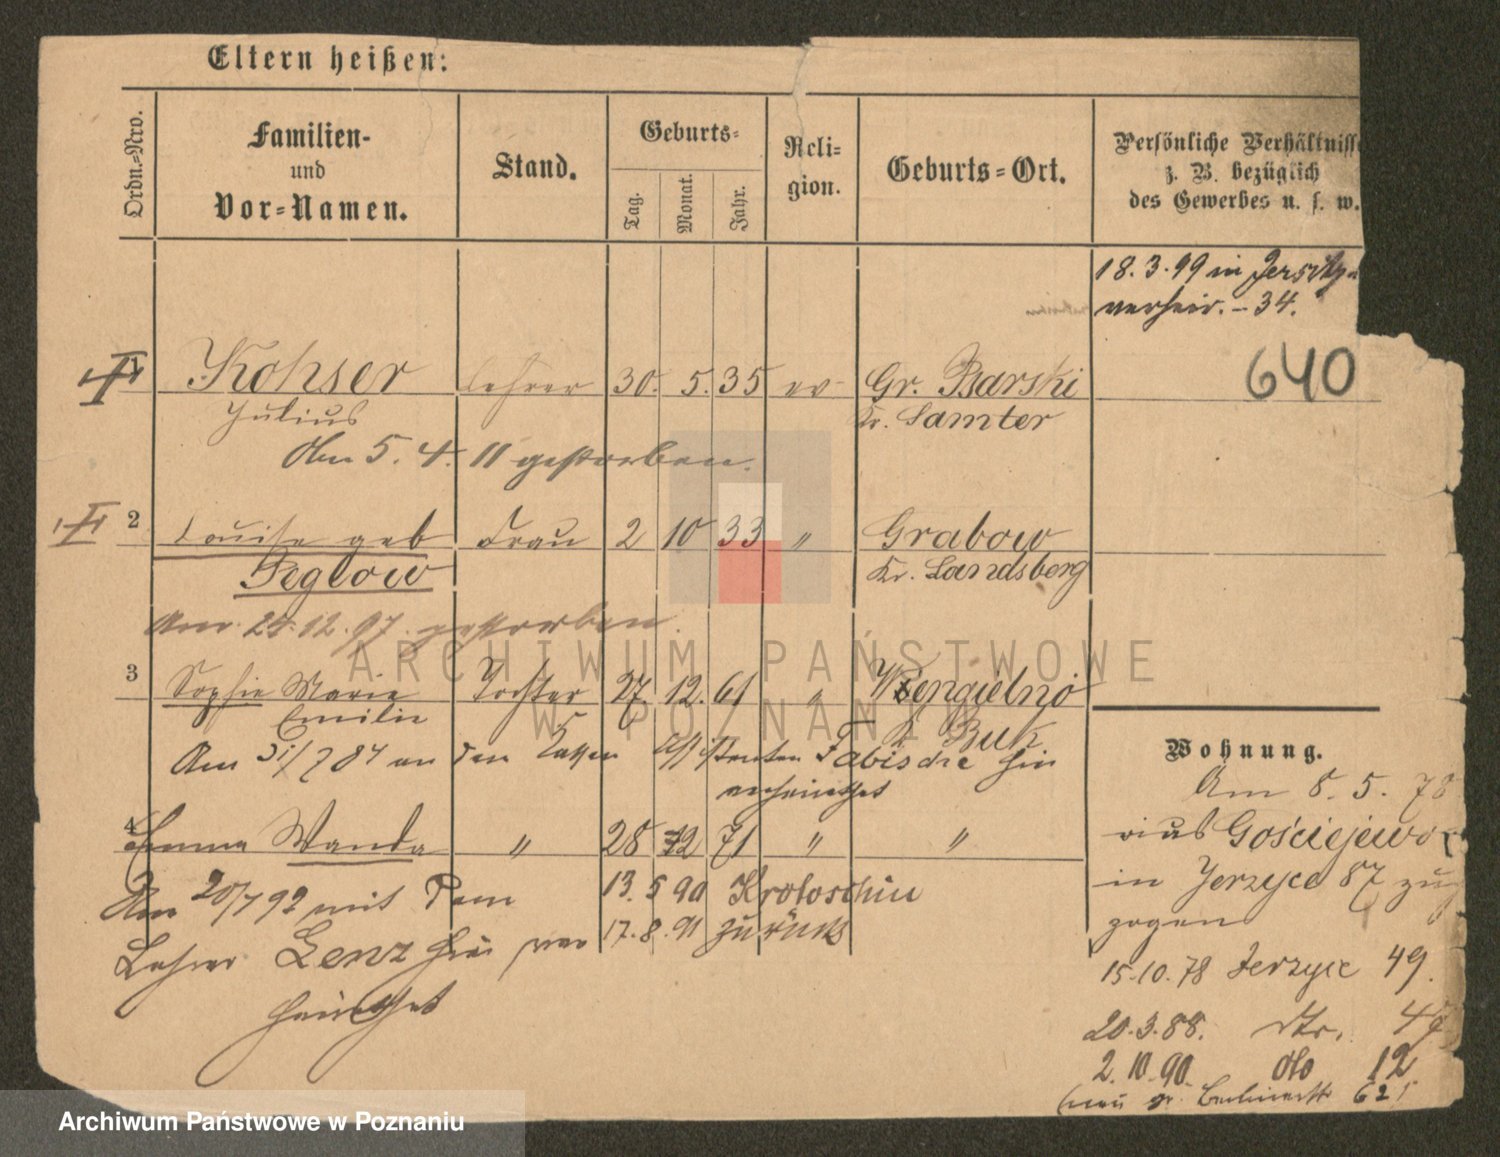 Eltern heißen:
Ordn.-Nro.
Familien-
und
Vor-Namen.
Stand.
Geburts-
Tag.
Monat.
Jahr.
Reli-
gion.
Geburts-Ort.
Persönliche Verhältnisse
z. B. bezüglich
des Gewerbes u. s. w.
18.3.99 in Jersitz
verheir. – 34.
640
1 Kohser Lehrer 30. 5. 35 ev Gr. Barski
Julius Kr. Samter
Am 5. 4. 11 gestorben.
2 Louise geb Frau 2 10 33 " Grabow
Peglow Kr. Landsberg
Am 24.12.97 gestorben.
3 Sophie Marie Tochter 27 12. 61 " Wengielno
Emilie K Buk
Am 31/7 84 an den Assistenten Fabische hier
verheirathet
4 Emma Wanda " 28 12 71 " "
Am 20/7 92 mit dem 13. 5 90 Krotoschin
Lehrer Lenz hier ver 17. 8. 91 zurück
heirathet
Wohnung.
Am 8. 5. 78
aus Gościejewo
in Jerzyce 87 zuge
zogen
15.10.78 Jerzyce 49.
20.3.88. dto. 49
2.10.90. dto 12
62
ARCHIWUM PAŃSTWOWE
W POZNANIU
Archiwum Państwowe w Poznaniu